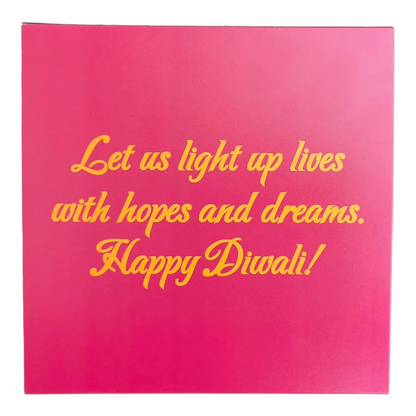 Let us light up lives
with hopes and dreams.
Happy Diwali!